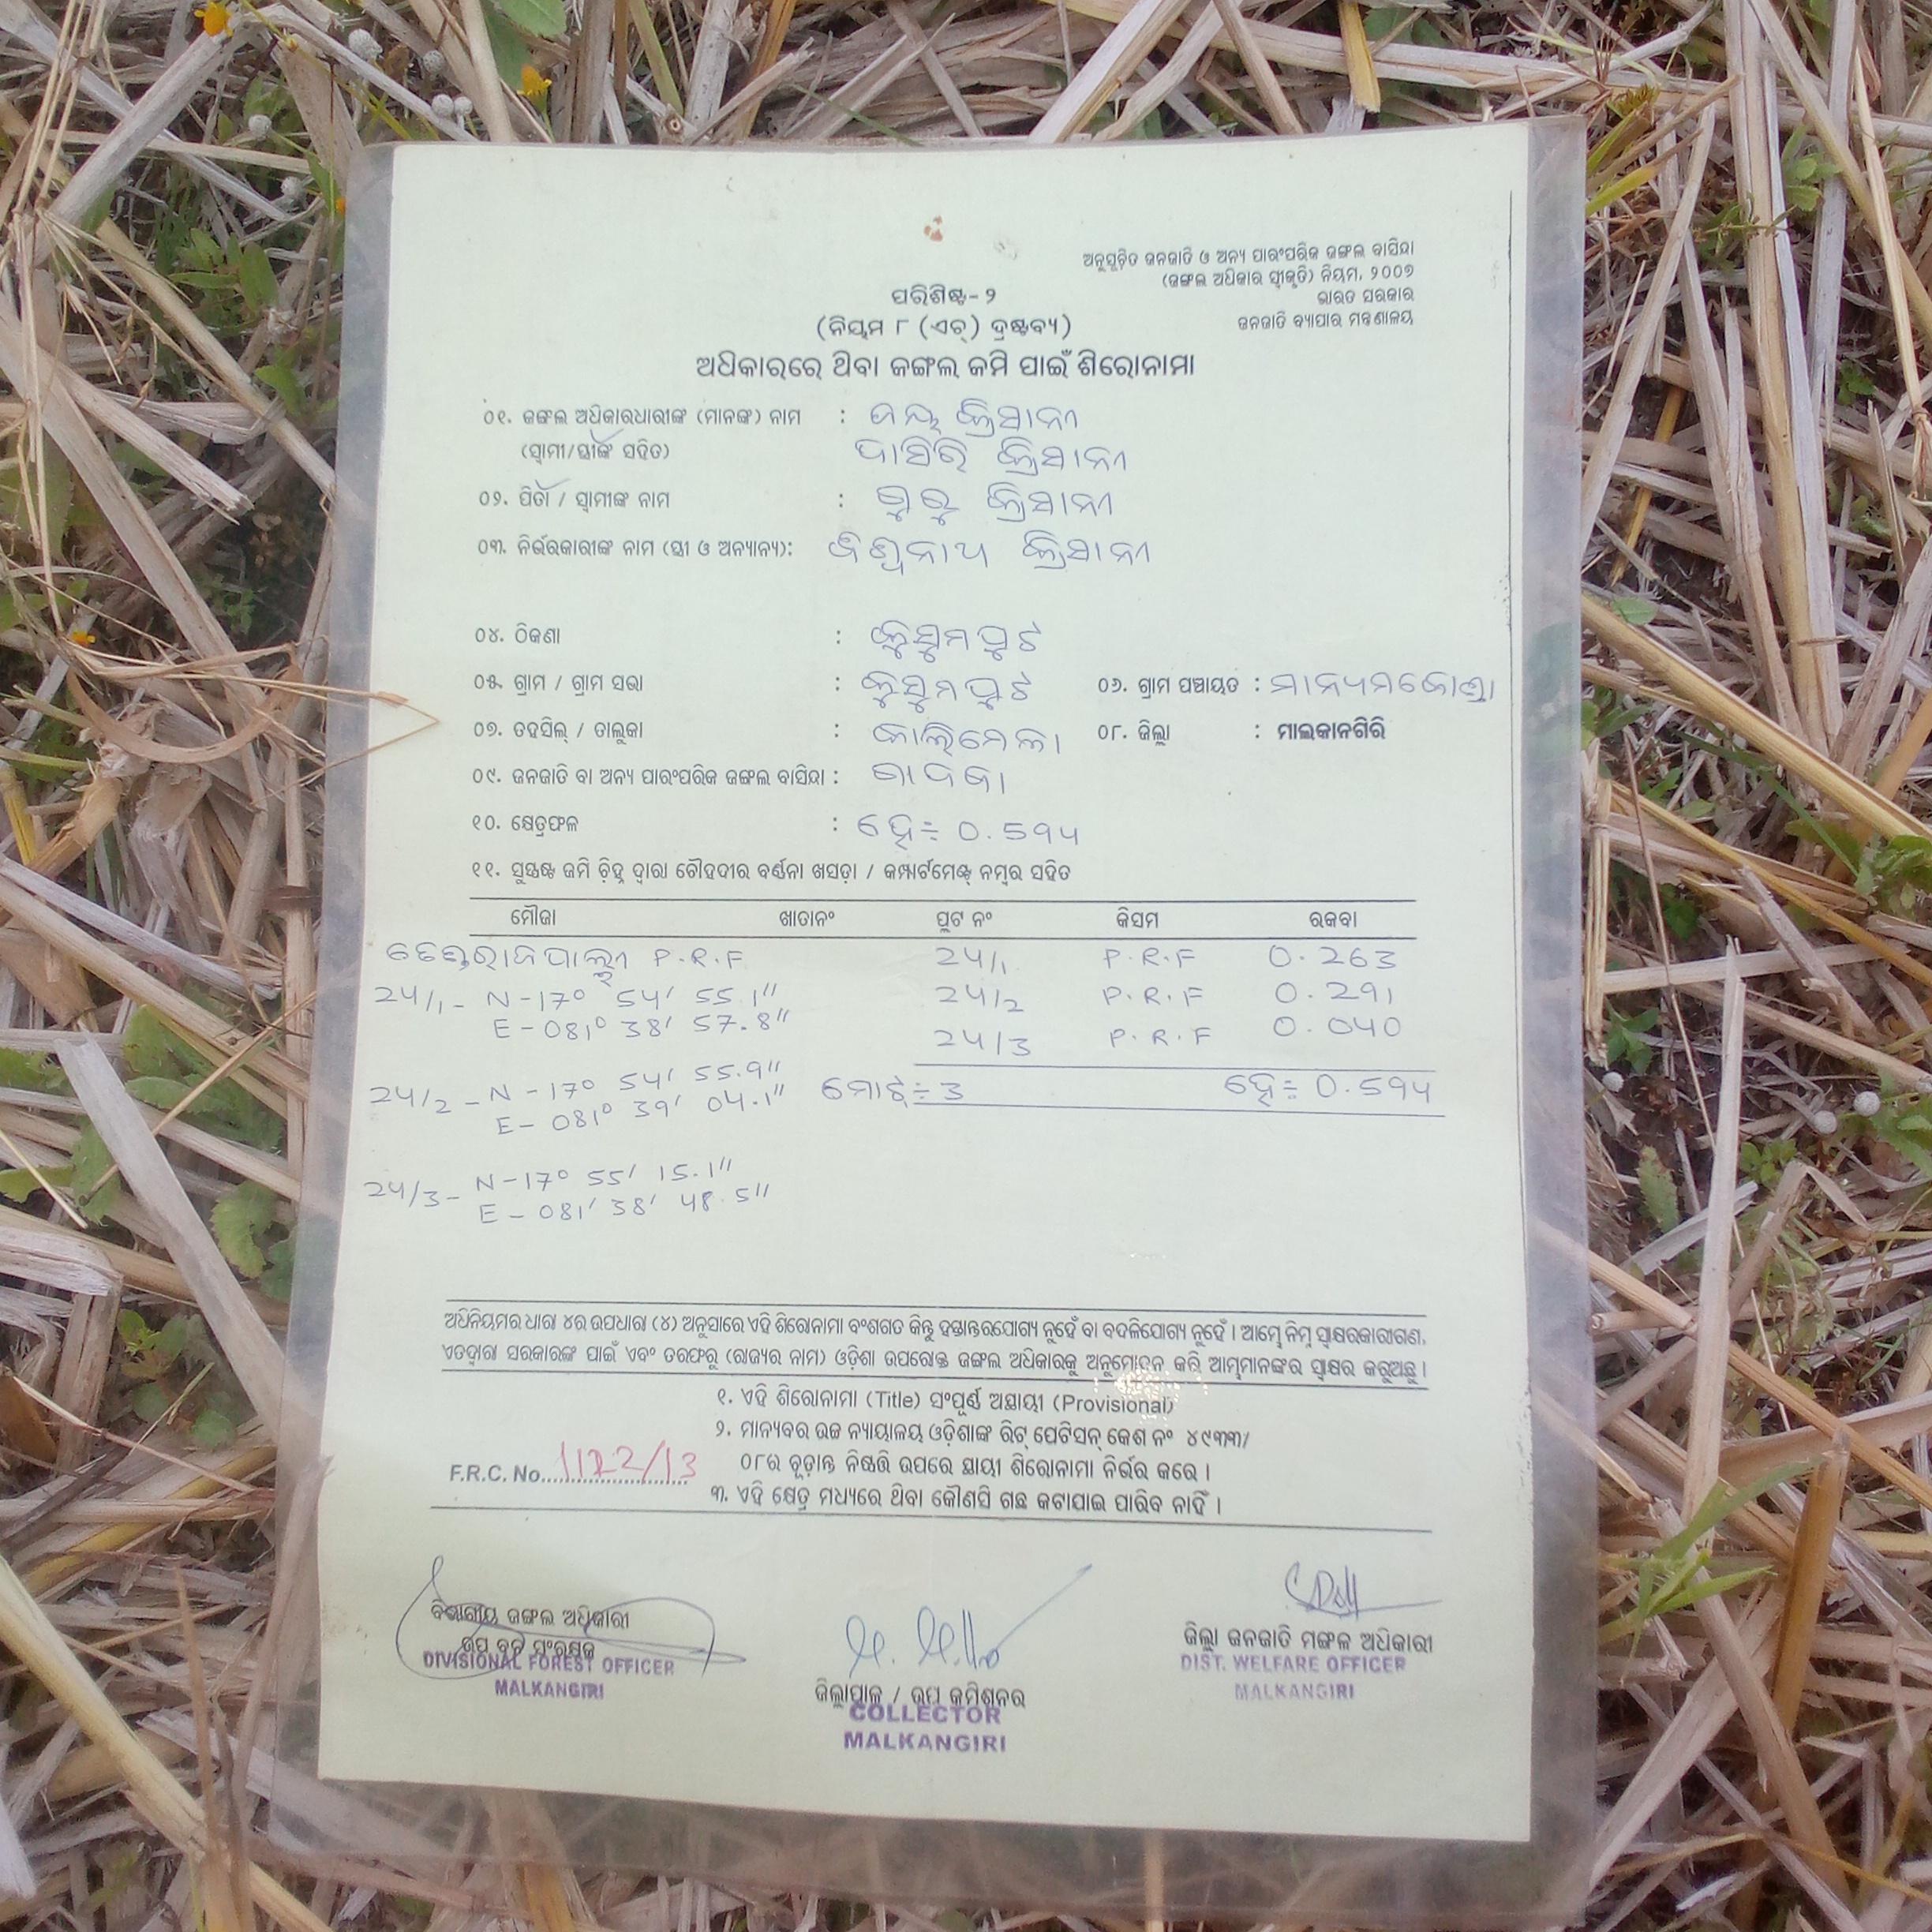 ଅନୁସୂଚିତ ଜନଜାତି ଓ ଅନ୍ୟ ପାରଂପରିକ ଜଙ୍ଗଲ ବାସିନ୍ଦା
(ଜଙ୍ଗଲ ଅଧିକାର ସ୍ୱୀକୃତି) ନିୟମ, ୨୦୦୭
ଭାରତ ସରକାର
ଜନଜାତି ବ୍ୟାପାର ମନ୍ତ୍ରଣାଳୟ
ପରିଶିଷ୍ଟ-୨
(ନିୟମ ୮ (ଏଚ୍) ଦ୍ରଷ୍ଟବ୍ୟ)
ଅଧିକାରରେ ଥିବା ଜଙ୍ଗଲ ଜମି ପାଇଁ ଶିରୋନାମା
୦୧. ଜଙ୍ଗଲ ଅଧିକାରଧାରୀଙ୍କ (ମାନଙ୍କ) ନାମ :
(ସ୍ୱାମୀ/ସ୍ତ୍ରୀଙ୍କ ସହିତ)
୦୨. ପିତା / ସ୍ୱାମୀଙ୍କ ନାମ :
୦୩. ନିର୍ଭରକାରୀଙ୍କ ନାମ (ସ୍ତ୍ରୀ ଓ ଅନ୍ୟାନ୍ୟ):
୦୪. ଠିକଣା : କୁସୁମପୁଟ
୦୫. ଗ୍ରାମ / ଗ୍ରାମ ସଭା : କୁସୁମପୁଟ ୦୬. ଗ୍ରାମ ପଞ୍ଚାୟତ : ମାନ୍ୟମକୋଣ୍ଡା
୦୭. ତହସିଲ୍ / ତାଲୁକା : କାଲିମେଳା ୦୮. ଜିଲ୍ଲା : ମାଲକାନଗିରି
୦୯. ଜନଜାତି ବା ଅନ୍ୟ ପାରଂପରିକ ଜଙ୍ଗଲ ବାସିନ୍ଦା : ଗାଦବା
୧୦. କ୍ଷେତ୍ରଫଳ : ହେ÷ 0.594
୧୧. ସୁସ୍ପଷ୍ଟ ଜମି ଚିହ୍ନ ଦ୍ୱାରା ଚୌହଦୀର ବର୍ଣ୍ଣନା ଖସଡ଼ା / କମ୍ପାର୍ଟମେଣ୍ଟ ନମ୍ବର ସହିତ
ମୌଜା ଖାତାନଂ ପ୍ଲଟ ନଂ କିସମ ରକବା
P.R.F 24/1 P.R.F 0.263
24/1 - N-17° 54' 55.1" 24/2 P.R.F 0.291
E-081° 38' 57.8" 24/3 P.R.F 0.040
24/2 - N-17° 54' 55.9" ମୋଟ୍÷3 ହେ÷ 0.594
E-081° 39' 04.1"
24/3 - N-17° 55' 15.1"
E-081' 38' 48.5"
ଅଧିନିୟମର ଧାରା ୪ର ଉପଧାରା (୪) ଅନୁସାରେ ଏହି ଶିରୋନାମା ବଂଶଗତ କିନ୍ତୁ ହସ୍ତାନ୍ତରଯୋଗ୍ୟ ନୁହେଁ ବା ବଦଳିଯୋଗ୍ୟ ନୁହେଁ । ଆମ୍ଭେ ନିମ୍ନ ସ୍ୱାକ୍ଷରକାରୀଗଣ,
ଏତଦ୍ୱାରା ସରକାରଙ୍କ ପାଇଁ ଏବଂ ତରଫରୁ (ରାଜ୍ୟର ନାମ) ଓଡ଼ିଶା ଉପରୋକ୍ତ ଜଙ୍ଗଲ ଅଧିକାରକୁ ଅନୁମୋଦନ କରି ଆମ୍ଭମାନଙ୍କର ସ୍ୱାକ୍ଷର କରୁଅଛୁ ।
୧. ଏହି ଶିରୋନାମା (Title) ସଂପୂର୍ଣ୍ଣ ଅସ୍ଥାୟୀ (Provisional)
୨. ମାନ୍ୟବର ଉଚ୍ଚ ନ୍ୟାୟାଳୟ ଓଡ଼ିଶାଙ୍କ ରିଟ୍ ପେଟିସନ୍ କେଶ ନଂ ୪୯୩୩/
୦୮ର ଚୂଡ଼ାନ୍ତ ନିଷ୍ପତ୍ତି ଉପରେ ସ୍ଥାୟୀ ଶିରୋନାମା ନିର୍ଭର କରେ ।
F.R.C. No. 1122/13
୩. ଏହି କ୍ଷେତ୍ର ମଧ୍ୟରେ ଥିବା କୌଣସି ଗଛ କଟାଯାଇ ପାରିବ ନାହିଁ ।
ବିଭାଗୀୟ ଜଙ୍ଗଲ ଅଧିକାରୀ
ଉପ ବନ ସଂରକ୍ଷକ
DIVISIONAL FOREST OFFICER
MALKANGIRI
ଜିଲ୍ଲାପାଳ / ଉପ କମିଶନର
COLLECTOR
MALKANGIRI
ଜିଲ୍ଲା ଜନଜାତି ମଙ୍ଗଳ ଅଧିକାରୀ
DIST. WELFARE OFFICER
MALKANGIRI